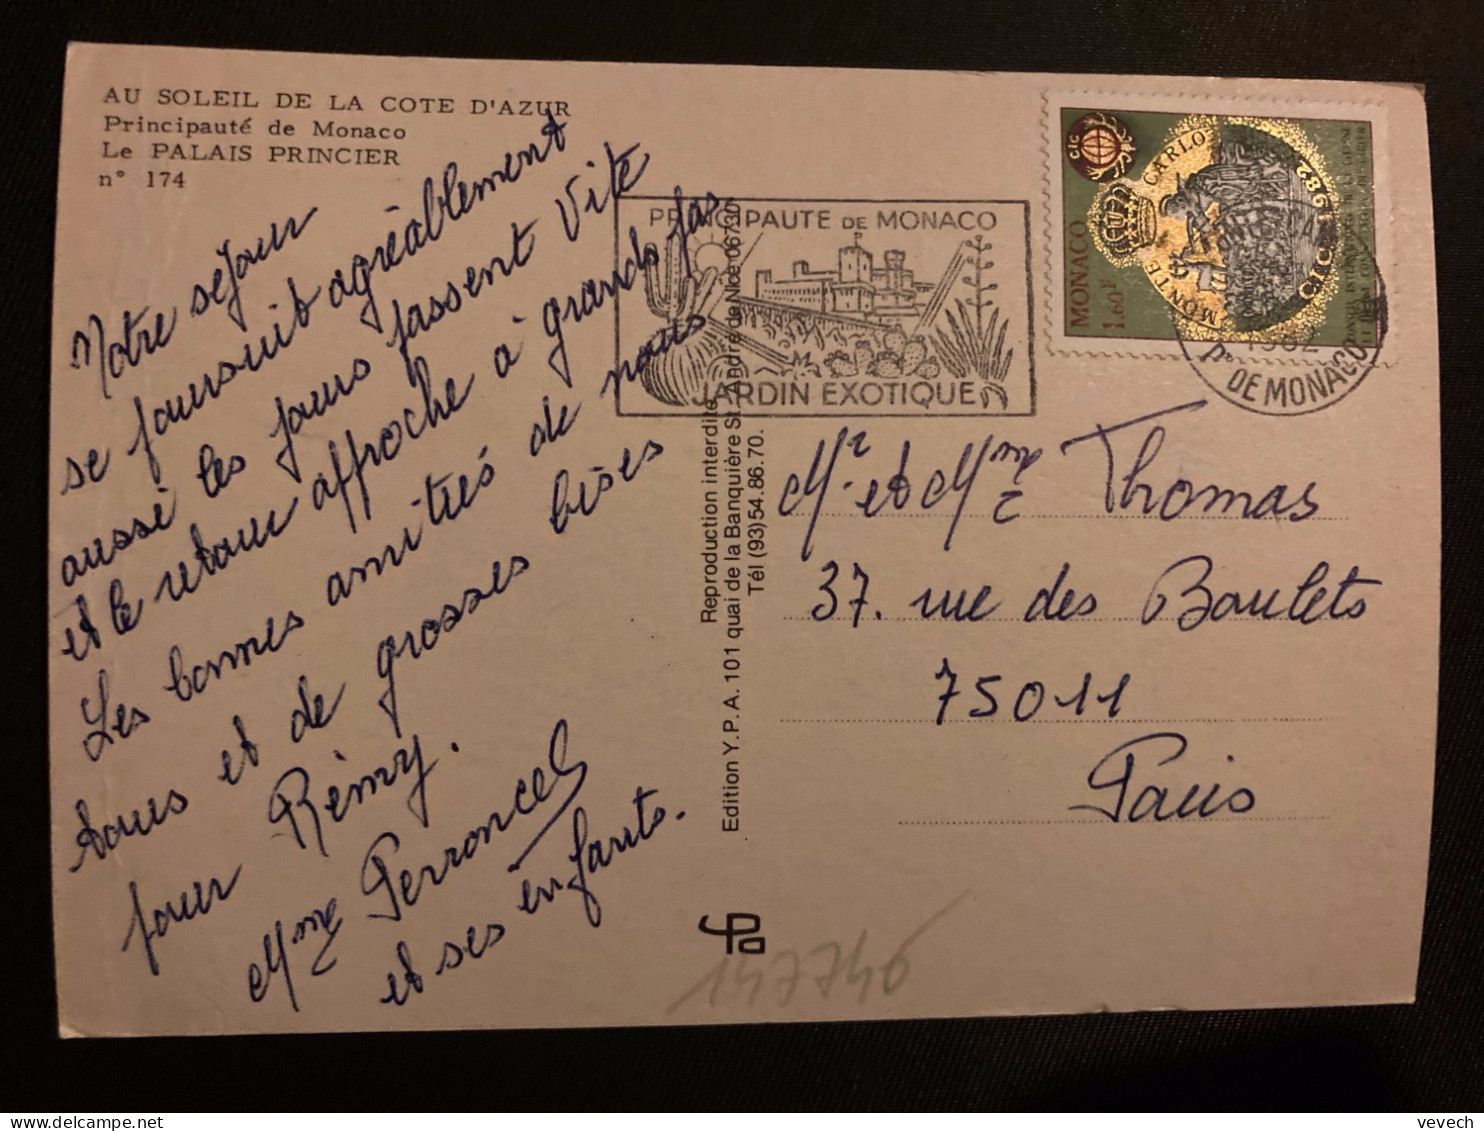 AU SOLEIL DE LA COTE D'AZUR
Principauté de Monaco
Le PALAIS PRINCIER
n° 174
Notre séjour
se poursuit agréablement
aussi les jours passent vite
et le retour approche à grands pas
Les bonnes amitiés de nous
tous et de grosses bises
pour Rémy.
Mme Perroncel
et ses enfants.
PRINCIPAUTE DE MONACO
JARDIN EXOTIQUE
Reproduction interdite
Edition Y.P.A. 101 quai de la Banquière St. André de Nice 06730
Tél (93) 54.86.70.
MONACO
1.60F
MONTE CARLO
CIC 1982
CIC
1982
Pté DE MONACO
Mr et Mme Thomas
37. rue des Boulets
75011
Paris
147746
vevech